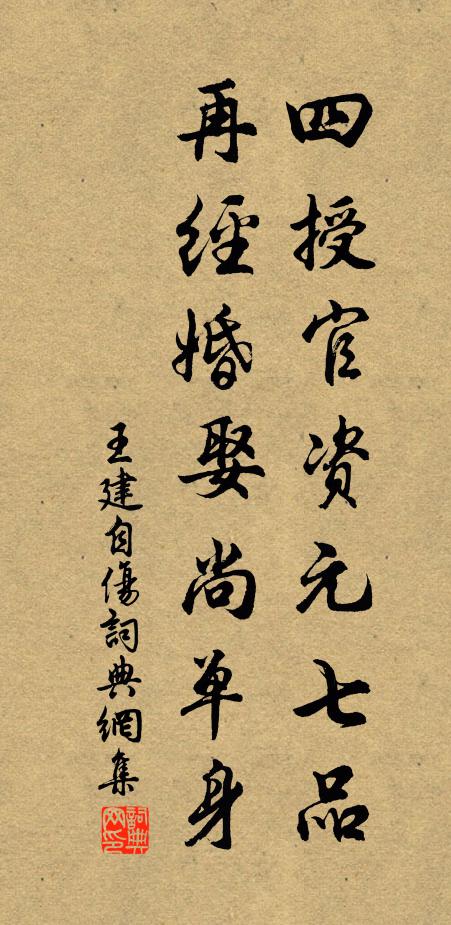 四授官资元七品
再經婚娶尚单身
王建自傷詞典網集
詞典
网印